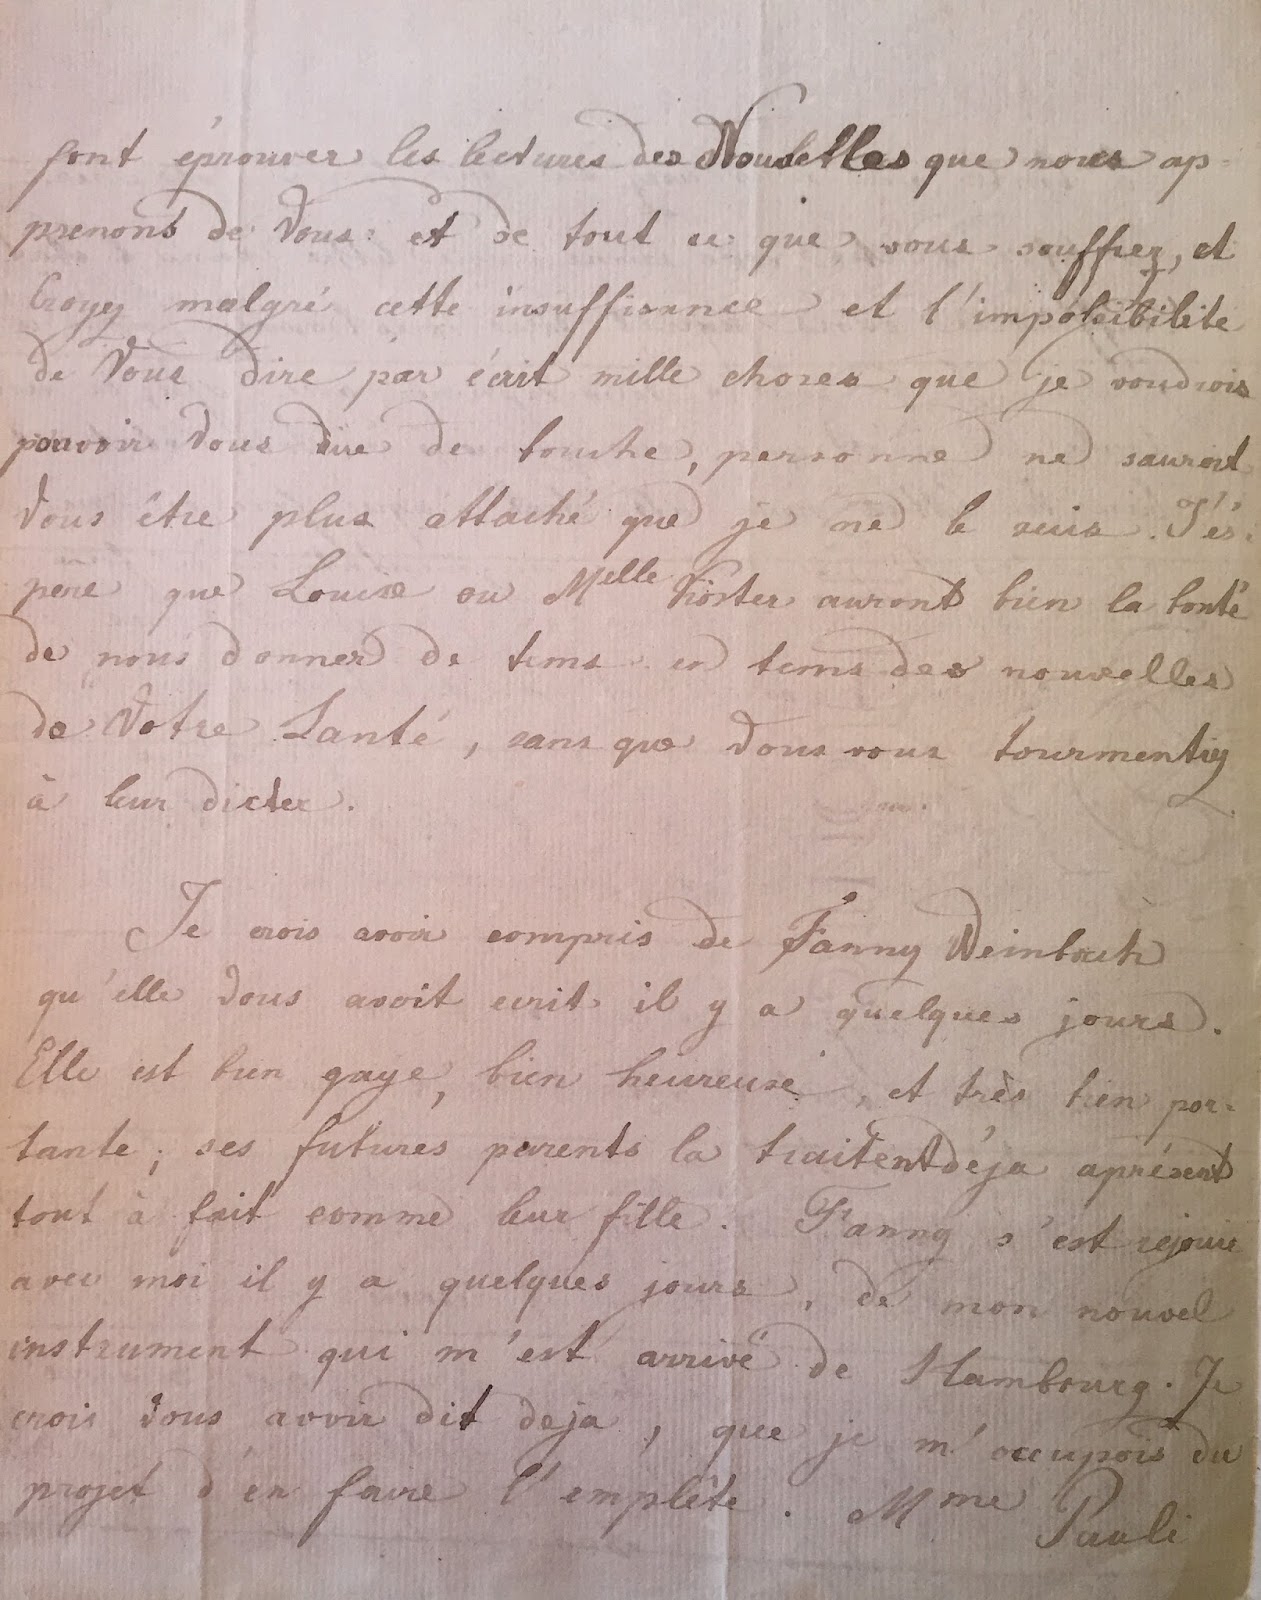 font éprouver les lectures des Nouvelles que nous ap-
prenons de Vous et de tout ce que vous souffrez, et
Croyez malgré cette insuffisance et l'impossibilité
de Vous dire par écrit mille choses que je voudrois
pouvoir Vous dire de bouche, personne ne sauroit
Vous être plus attaché que je ne le suis. J'és-
père que Louise ou Melle Köster auront bien la bonté
de nous donner de tems en tems des nouvelles
de Votre Santé, sans que Vous vous tourmentiez
à leur dicter.
Je crois avoir compris de Fanny Weinbach
qu'elle Vous avoit ecrit il y a quelques jours.
Elle est bien gaye, bien heureuse, et très bien por-
tante; ses futures parents la traitent déja aprésent
tout à fait comme leur fille. Fanny s'est rejouie
avec moi il y a quelques jours, de mon nouvel
instrument qui m'est arrivé de Hambourg. Je
crois Vous avoir dit deja, que je m'occupois du
projet d'en faire l'emplète. Mme
Pauli